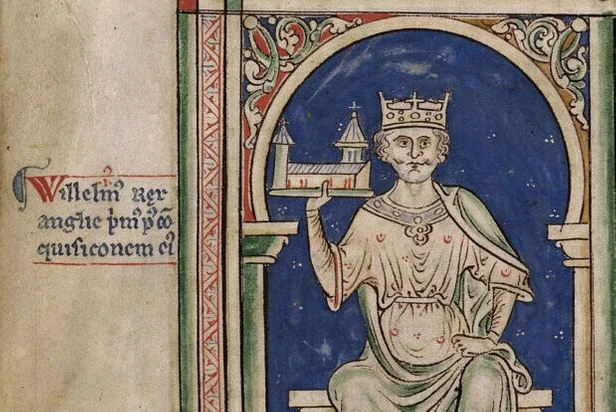 Willelm̄ Rex
anglie pm̄ p' co
quisiconem ei